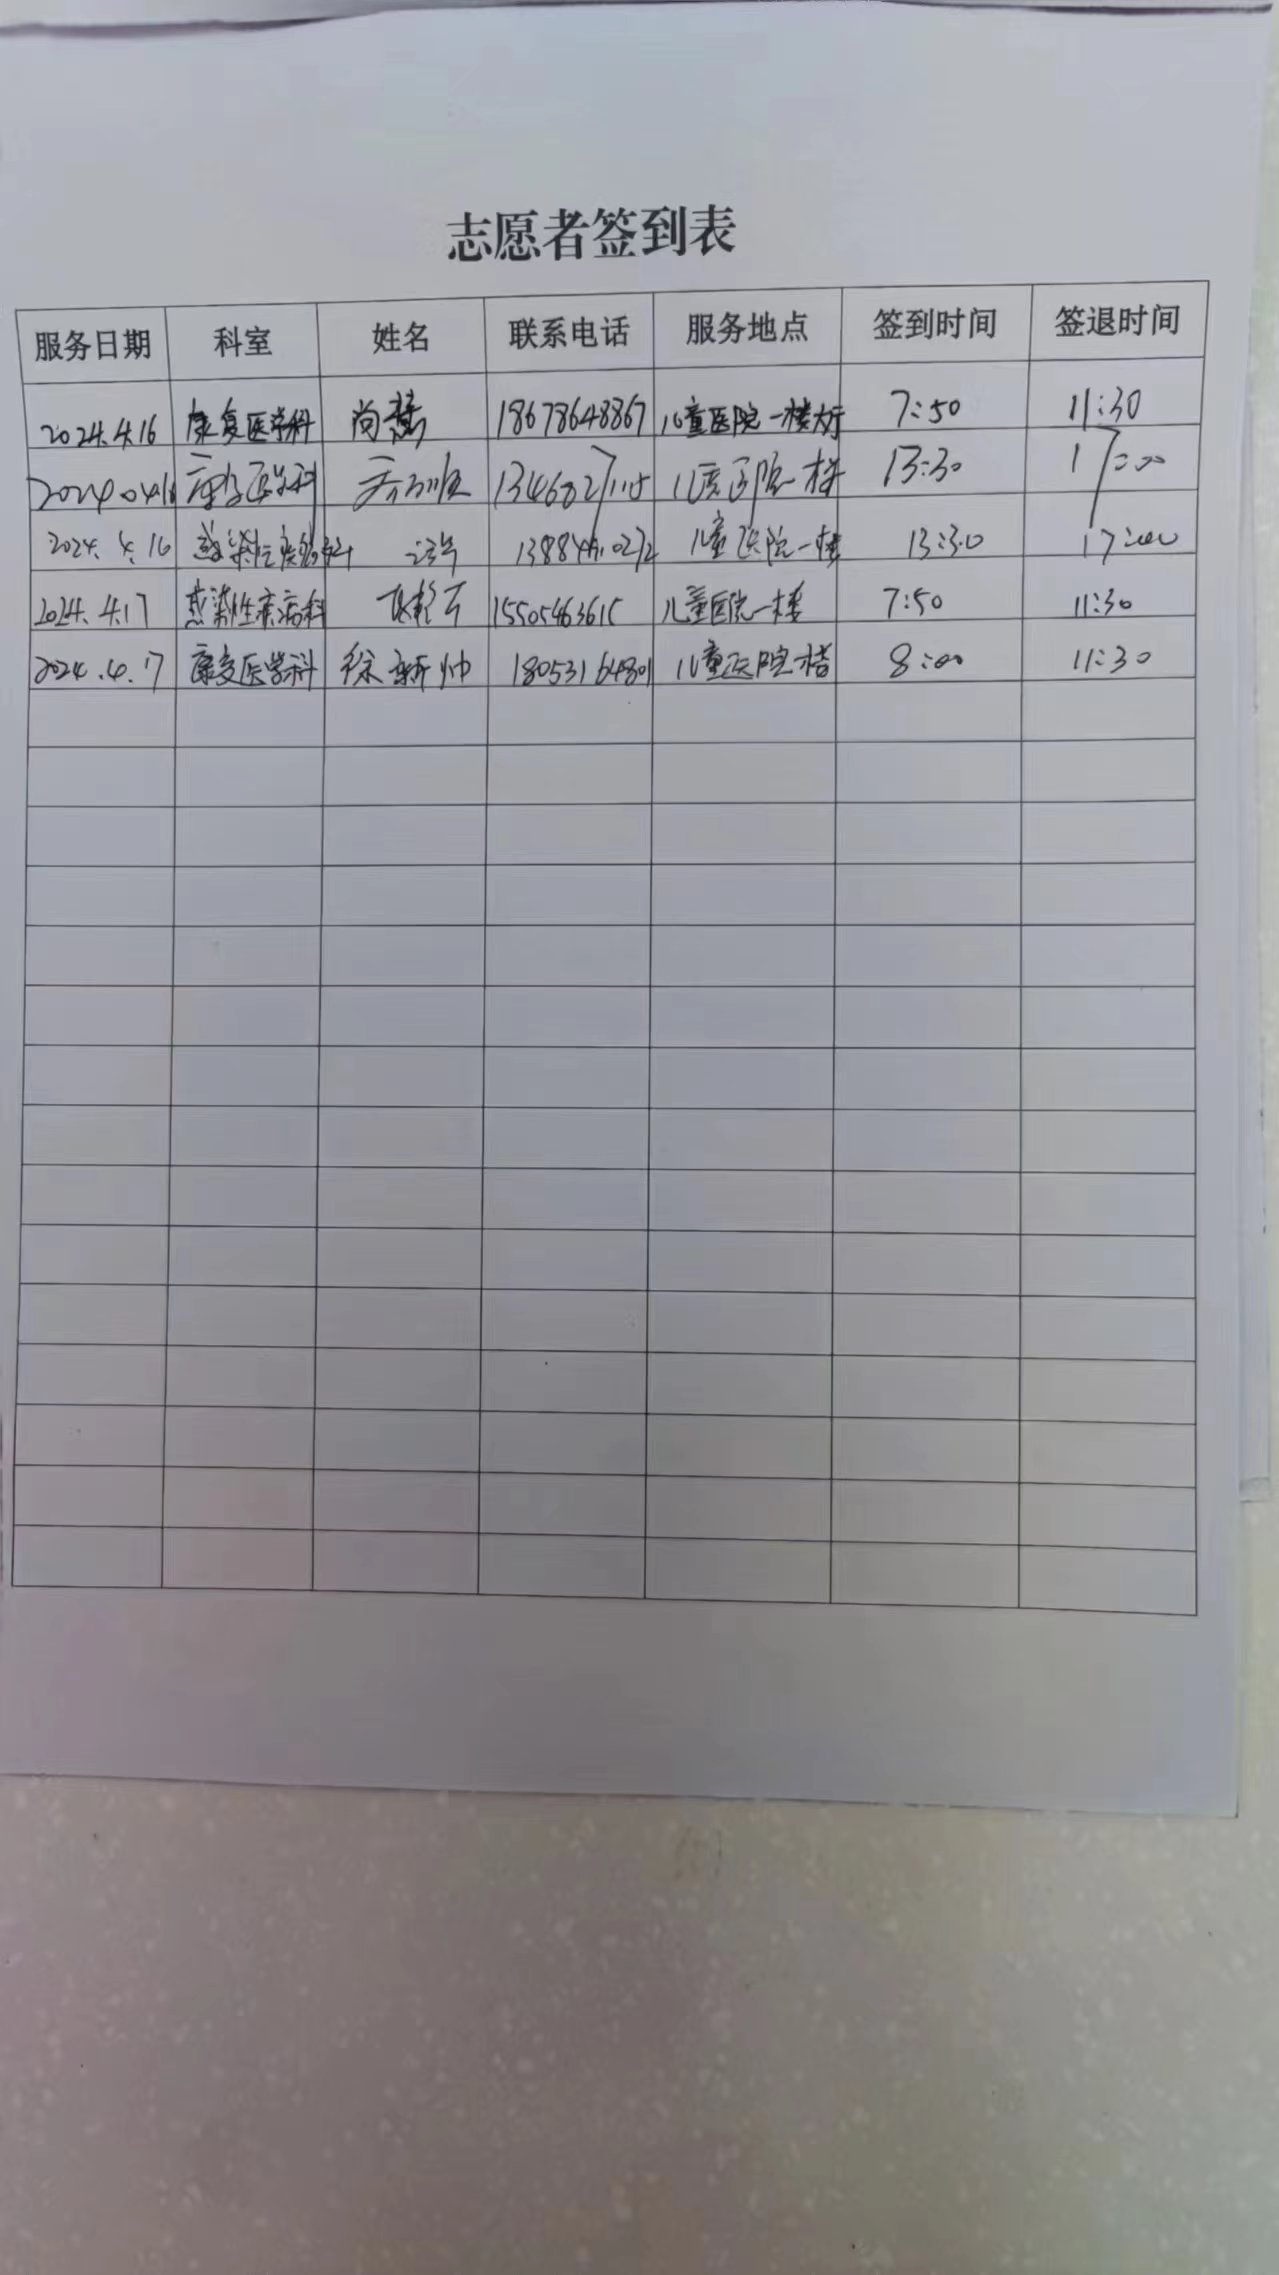 志愿者签到表
服务日期 科室 姓名 联系电话 服务地点 签到时间 签退时间
2024.4.16 康复医学科 尚 18678648867 儿童医院一楼大厅 7:50 11:30
2024.04.16 康复医学科 儿童医院一楼 13:30 17:00
2024.4.16 感染性疾病科 儿童医院一楼 13:30 17:00
2024.4.17 感染性疾病科 15505463615 儿童医院一楼 7:50 11:30
2024.4.17 康复医学科 徐新帅 18053164801 儿童医院一楼 8:00 11:30